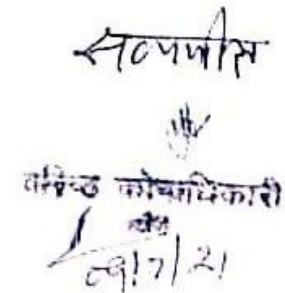 सत्यापित
वरिष्ठ कोषाधिकारी
09/7/21